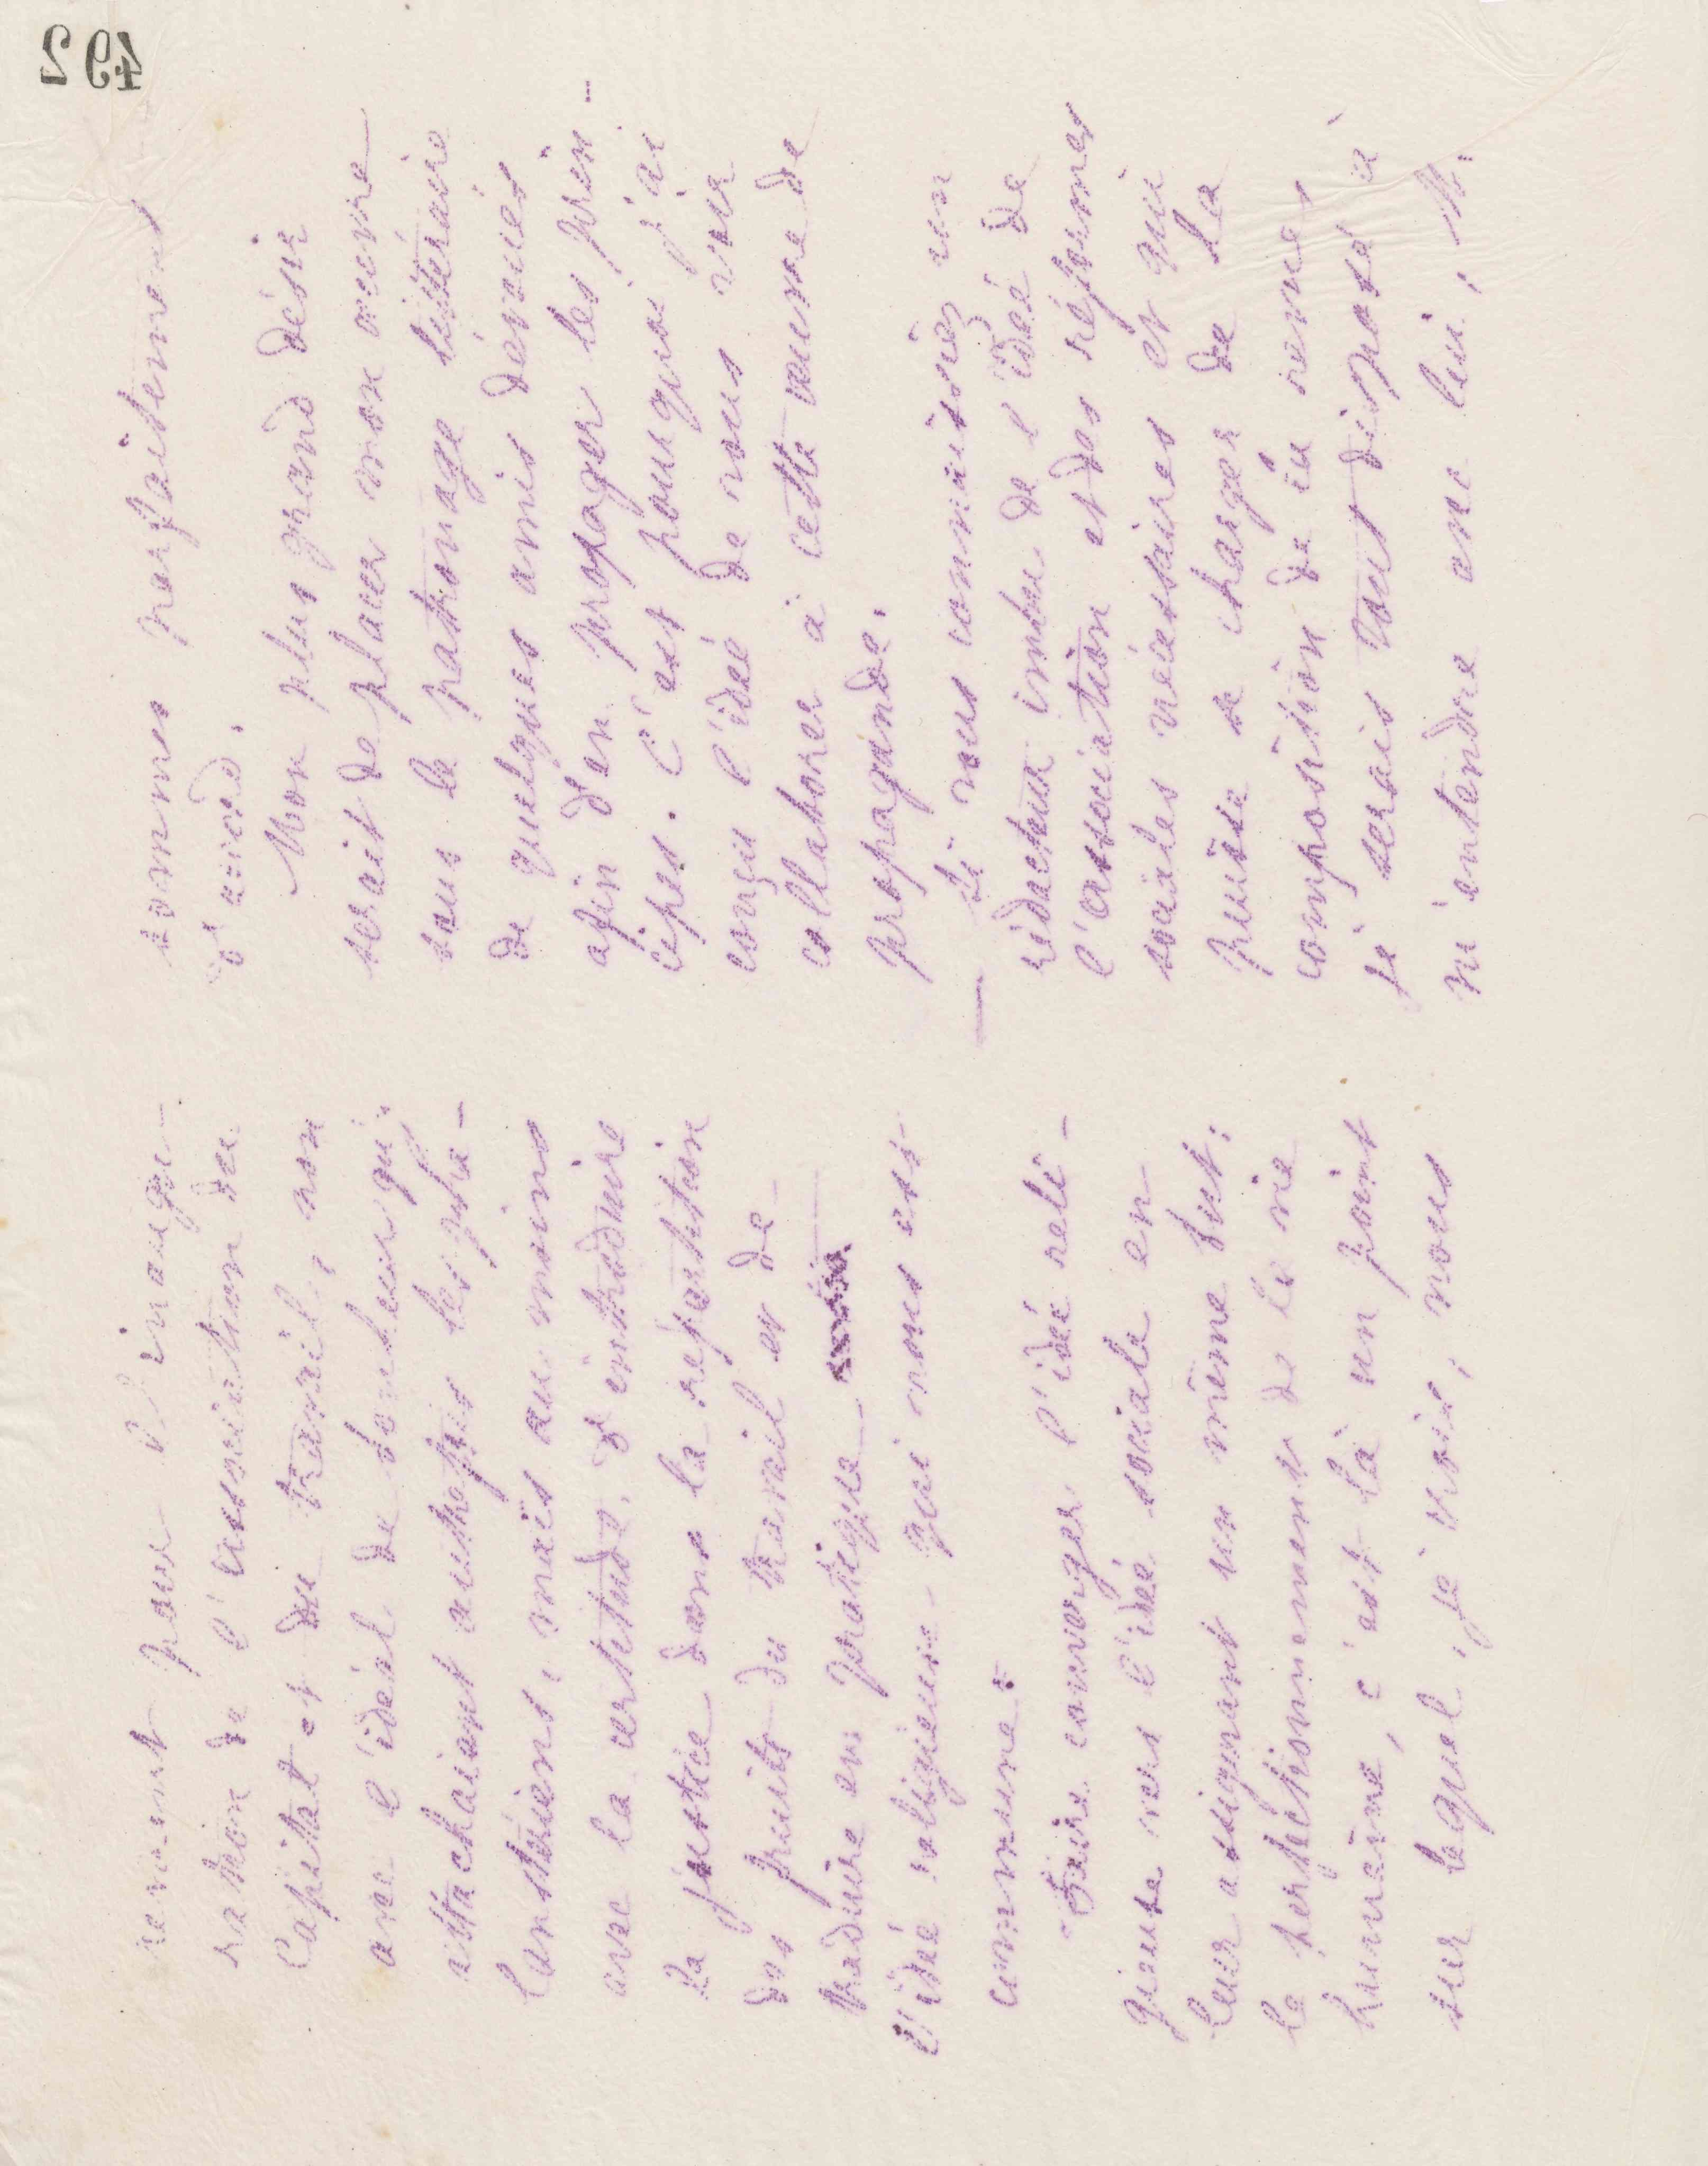 492
venant pour l'inaugu-
ration de l'Association du
Capital et du travail, non
avec l'idéal de bonheur qu'y
attachaient autrefois les pha-
lanstériens, mais au moins
avec la certitude d'introduire
la justice dans la répartition
des fruits du travail et de
traduire en pratique
l'idée religieuse qui nous est
commune.
Faire converger l'idée reli-
gieuse vers l'idée sociale en
leur assignant un même but:
le perfectionnement de la vie
humaine, c'est là un point
sur lequel, je vois, nous
sommes parfaitement
d'accord.
Mon plus grand désir
serait de placer mon œuvre
sous le patronage littéraire
de quelques amis dévoués
afin d'en propager les prin-
cipes. C'est pourquoi j'ai
conçu l'idée de vous voir
collaborer à cette œuvre de
propagande.
— Si vous connaissiez un
rédacteur imbu de l'idée de
l'association et des réformes
sociales nécessaires et qui
puisse se charger de la
composition de la revue
je serais tout disposé à
m'entendre avec lui, M.